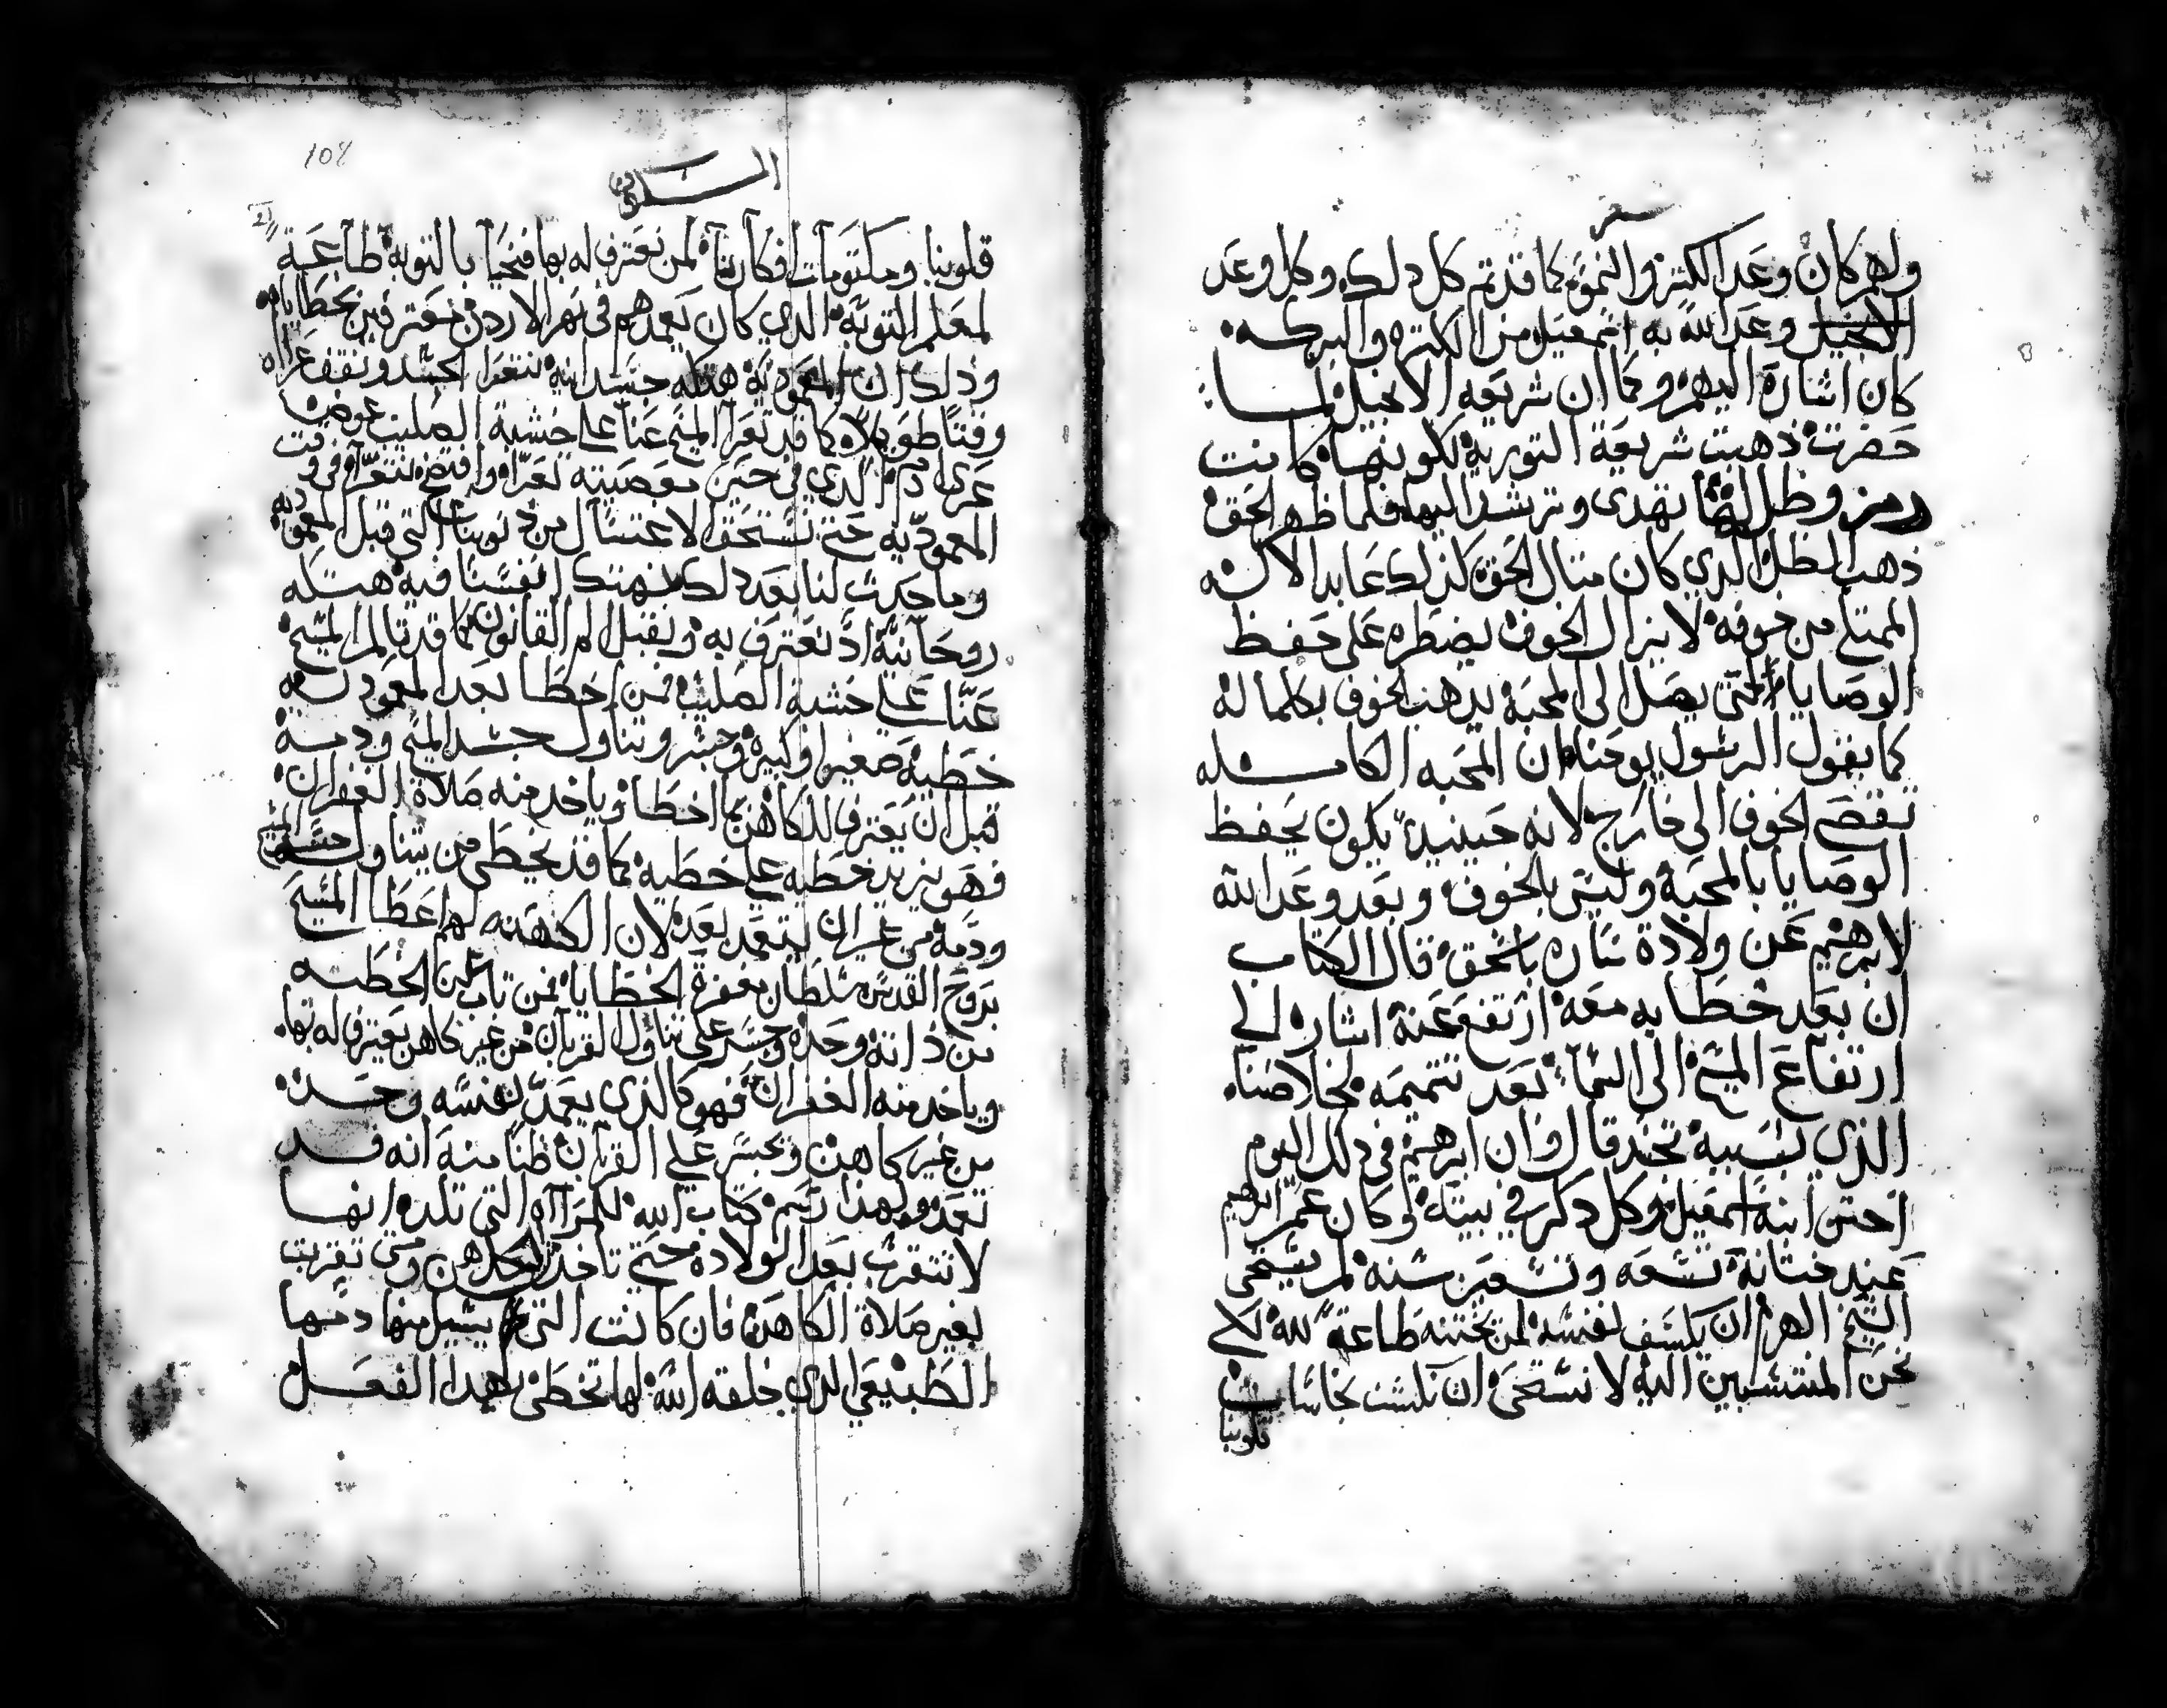 سفر
ولهم كان وعد الكتره والنمو كما قد تم كل دلك وكل وعد
الانجيل وعد الله به اسمعيل من الكتره والبركه
كان اشاره اليهم وكما ان شريعه الانجيل لما
حضرت ذهبت شريعة التوريه لكونها كانت
رمز وظل لها تهدى وترشد اليها فلما ظهر الحق
ذهب الظل الدي كان متال الحق كذلك عابد الاله
الممتلي من خوفه لا يزال الخوف يضطره على حفظ
الوصايا حتى يصل الى المحبه يدهب الخوف بكلماله
كما يقول الرسول يوحنا ان المحبه الكامله
تقصى الخوف الى خارج لانه حينيد يكون يحفظ
الوصايا بالمحبة وليس بالخوف وبعد وعد الله
لابرهيم عن ولادة ساره باسحق قال الكتاب
ان بعد خطابه معه ارتفع عنه اشاره الي
ارتفاع المسيح الى السما بعد تتميمه لخلاصنا
الذي بسببه تجد قال وان ابرهيم في دلك اليوم
اختن ابنه اسمعيل وكل دكر في بيته وكان عمر ابرهيم
عند ختانه تسعه وتسعين سنه لم يستحى
الشيخ الهرم ان يكشف نفسه لمن يختنه طاعة لله لكي
نحن المنتسبين اليه لا نستحى ان نكشف نجاسات
قلوبنا
108
قلوبنا ومكتومات افكارنا لمن نعترف له بها فنحيا بالتوبه طاعة
لمعلم التوبه الدي كان يعمدهم في نهر الاردن معترفين بخطاياهم
ودلك ان المعموديه هتكه جسدانيه نتعرا الجسد ونقف عراه
وقتا طويلا كما قد تعرا المسيح عنا على خشبة الصليب عوض
عرى ادم الدي في حين معصيته تعرا وافتضح نتعرا في وقت
المعموديه حتى نستحق الاغتسال من دنوبنا التي قبل المعموديه
وما حدث لنا بعد دلك نهتك انفسنا فيه هتكه
روحانية اد نعترف به ونقبل الم القانون كما قد تالم المسيح
عنا على خشبة الصليب فمن اخطا بعد المعموديه
خطيه صغيره او كبيره وجسر وتناول جسد المسيح ودمه
قبل ان يعترف للكاهن بما اخطا وياخد منه صلاة الغفران
فهو يزيد خطيه على خطيه كما قد يخطى من يتناول جسد المسيح
ودمه من غير ان يتعمد بعد لان الكهنه لهم عطا المسيح
بروح القدس سلطان مغفرة الخطايا فمن تاب عن الخطيه
من ذاته وحده وجسر على تناول القربان من غير كاهن يعترف له بها
وياخد منه الغفران فهو كالذي يعمد نفسه وحده
من غير كاهن ويجسر على القربان ظنا منه انه قد
تعمد ولهذا رسم كتاب الله للمراه التي تلد انها
لا تتقرب بعد الولاده حتى تاخد الكاهن ومتى تقربت
بغير صلاة الكاهن فان كانت التي يسيل منها دمها
الطبيعي الدي خلقه الله لها تخطى بهدا الفعل